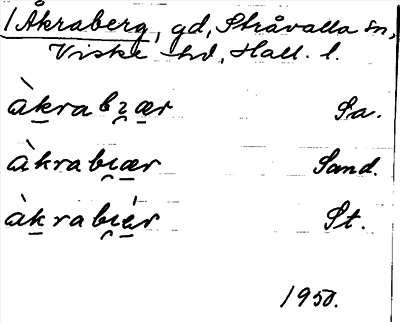 /Åkraberg, gd, Stråvalla sn,
Viske hd, Hall. l.
àk̠rabɩ̯æ̠r Sa.
àkrabɩ̯ær Sand.
àk̠rabɩ̯ǽ̠r St.
1950.